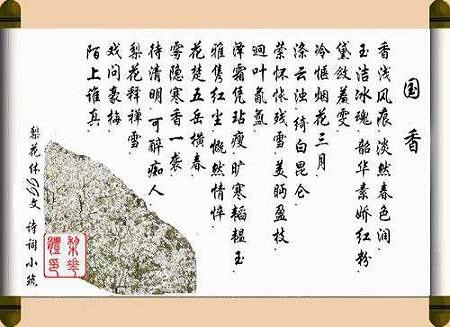 国香
香浅风痕.淡然春色润.
玉洁冰魂.韶华素娇红粉.
黛敛羞雯
冷惬烟花三月.
涤云浊绮白昆仑.
萦怀怅残雪.美眄盈枝
迥叶氤氲
泽霜凭玷瘦.旷寒韬韫玉.
雅隽红尘.慨然情悴.
花楚五岳横春
雾隐寒香一袭
待清明.可醉痴人
梨花释禅雪.
戏问豪梅
陌上谁真
梨花体 文 诗词小筑